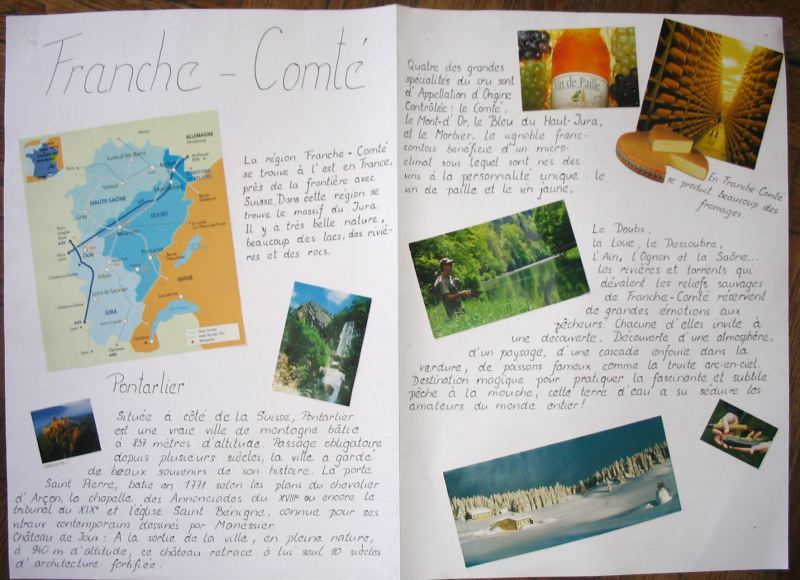 Franche - Comté
La région Franche - Comté
se trouve à l'est en France,
près de la frontière avec
Suisse. Dans cette région se
trouve le massif du Jura.
Il y a très belle nature,
beaucoup des lacs, des riviè-
res et des rocs.
ALLEMAGNE
HAUTE-SAÔNE
DOUBS
JURA
SUISSE
Vesoul
Gray
Dole
Pontarlier
Lausanne
Pontarlier
Située à côté de la Suisse, Pontarlier
est une vraie ville de montagne bâtie
à 837 mètres d'altitude. Passage obligatoire
depuis plusieurs siècles, la ville a gardé
de beaux souvenirs de son histoire. La porte
Saint Pierre, batie en 1771 selon les plans du chevalier
d'Arçon, la chapelle des Annonciades du XVIIIe ou encore le
tribunal du XIXe et l'église Saint Bénigne, connue pour ses
vitraux contemporains dessinés par Manessier.
Château de Joux: A la sortie de la ville, en pleine nature,
à 940 m d'altitude, ce château retrace à lui seul 10 siècles
d'architecture fortifiée.
Quatre des grandes
spécialités du cru sont
d'Appelation d'Origine
Contrôlée: le Comté,
le Mont-d'Or, le Bleu du Haut-Jura,
et le Morbier. Le vignoble franc-
comtois bénéficie d'un micro-
climat sous lequel sont nés des
vins à la personnalité unique: le
vin de paille et le vin jaune.
Vin de Paille
En Franche-Comté
se product beaucoup des
fromages.
Le Doubs,
la Loue, le Dessoubre,
l'Ain, l'Ognon et la Saône...
les rivières et torrents qui
dévalent les reliefs sauvages
de Franche-Comté réservent
de grandes émotions aux
pêcheurs. Chacune d'elles invite à
une découverte. Découverte d'une atmosphère,
d'un paysage, d'une cascade enfouie dans la
verdure, de poissons fameux comme la truite arc-en-ciel.
Destination magique pour pratiquer la fascinante et subtile
pêche à la mouche, cette terre d'eau a su séduire les
amateurs du monde entier!